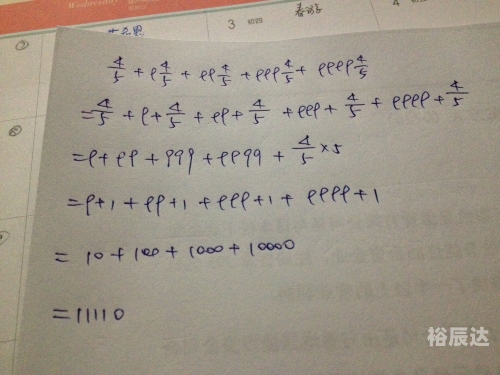 Wednesday
3 初四 春游 4
4/5 + 9 4/5 + 99 4/5 + 999 4/5 + 9999 4/5
= 4/5 + 9 + 4/5 + 99 + 4/5 + 999 + 4/5 + 9999 + 4/5
= 9 + 99 + 999 + 9999 + 4/5 × 5
= 9 + 1 + 99 + 1 + 999 + 1 + 9999 + 1
= 10 + 100 + 1000 + 10000
= 11110
裕辰达